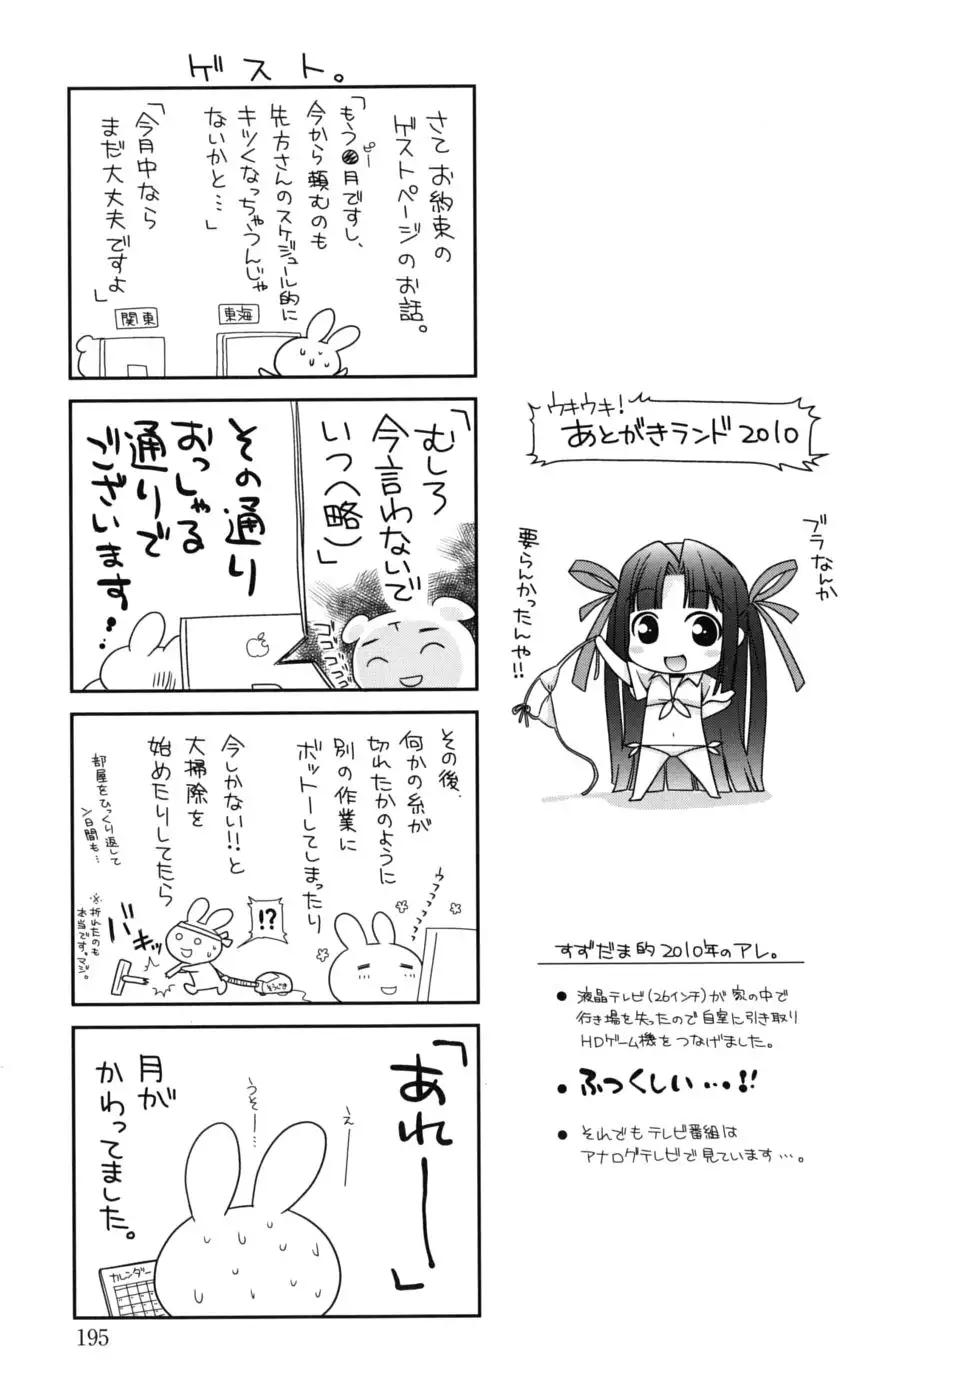 ウキウキ!
あとがきランド2010
ブラなんか
要らんかったんや!!
すずだま的2010年のアレ。
● 液晶テレビ(26インチ)が家の中で
行き場を失ったので自室に引き取り
HDゲーム機をつなげました。
● ふつくしい…!!
● それでもテレビ番組は
アナログテレビで見ています…。
ゲスト。
さてお約束の
ゲストページのお話。
「もう●月ですし、
ピー
今から頼むのも
先方さんのスケジュール的に
キツくなっちゃうんじゃ
ないかと…」
「今月中なら
まだ大丈夫ですよ」
東海
関東
「むしろ
今言わないで
いつ(略)」
ゴゴゴゴ
その通り
おっしゃる
通りで
ございます?
その後、
何かの糸が
切れたかのように
別の作業に
ボットーしてしまったり
ウフフフフフ
今しかない!!と
大掃除を
始めたりしてたら
部屋をひっくり返して
ン日間も…
!?
バキッ
そうじき
※折れたのも
本当です。マジ。
「あれ──」
えー
うそー…
月が
かわってました。
カレンダー
195